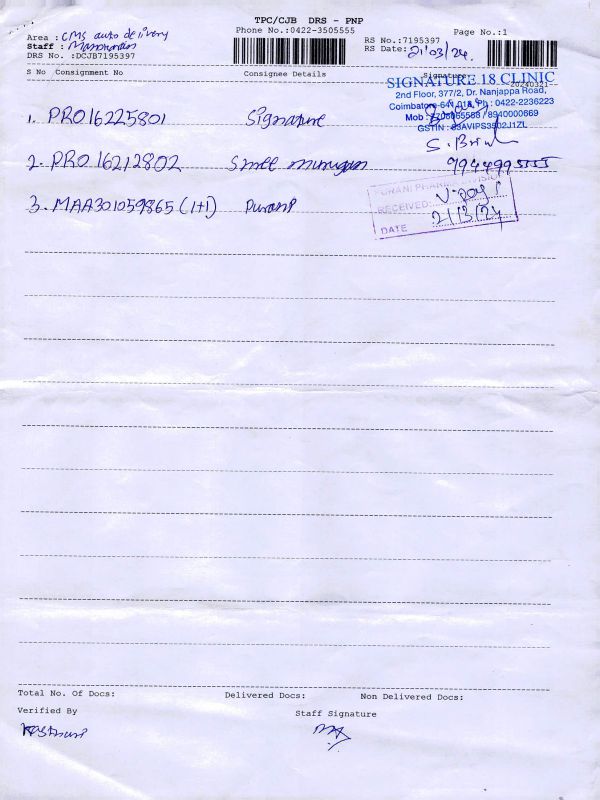 TPC/CJB DRS - PNP
Area : CMS auto delivery
Phone No.:0422-3505555
Page No.:1
Staff :
RS No.:7195397
DRS No. :DCJB7195397
RS Date: 21/03/24.
S No Consignment No Consignee Details Signature
20240321
SIGNATURE 18 CLINIC
2nd Floor, 377/2, Dr. Nanjappa Road,
Coimbatore-641 018, Ph : 0422-2236223
Mob : 8940000669
GSTIN :
1. PRO16225801 Signature
2. PRO16212802 Shree murugan 9944995555
3. MAA301059865 (1+1) Purani
PURANI PHARMA DIVISION
RECEIVED:
DATE 21/3/24
Total No. Of Docs: Delivered Docs: Non Delivered Docs:
Verified By Staff Signature